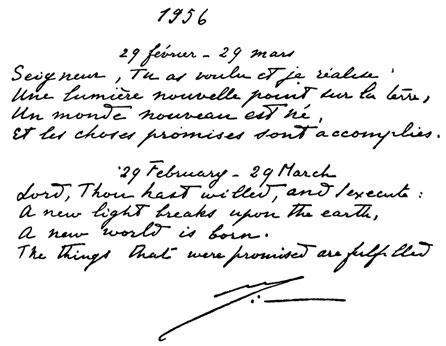 1956
29 février - 29 mars
Seigneur, Tu as voulu et je réalise :
Une lumière nouvelle point sur la terre,
Un monde nouveau est né,
Et les choses promises sont accomplies.
29 February - 29 March
Lord, Thou hast willed, and I execute :
A new light breaks upon the earth,
A new world is born.
The things that were promised are fulfilled